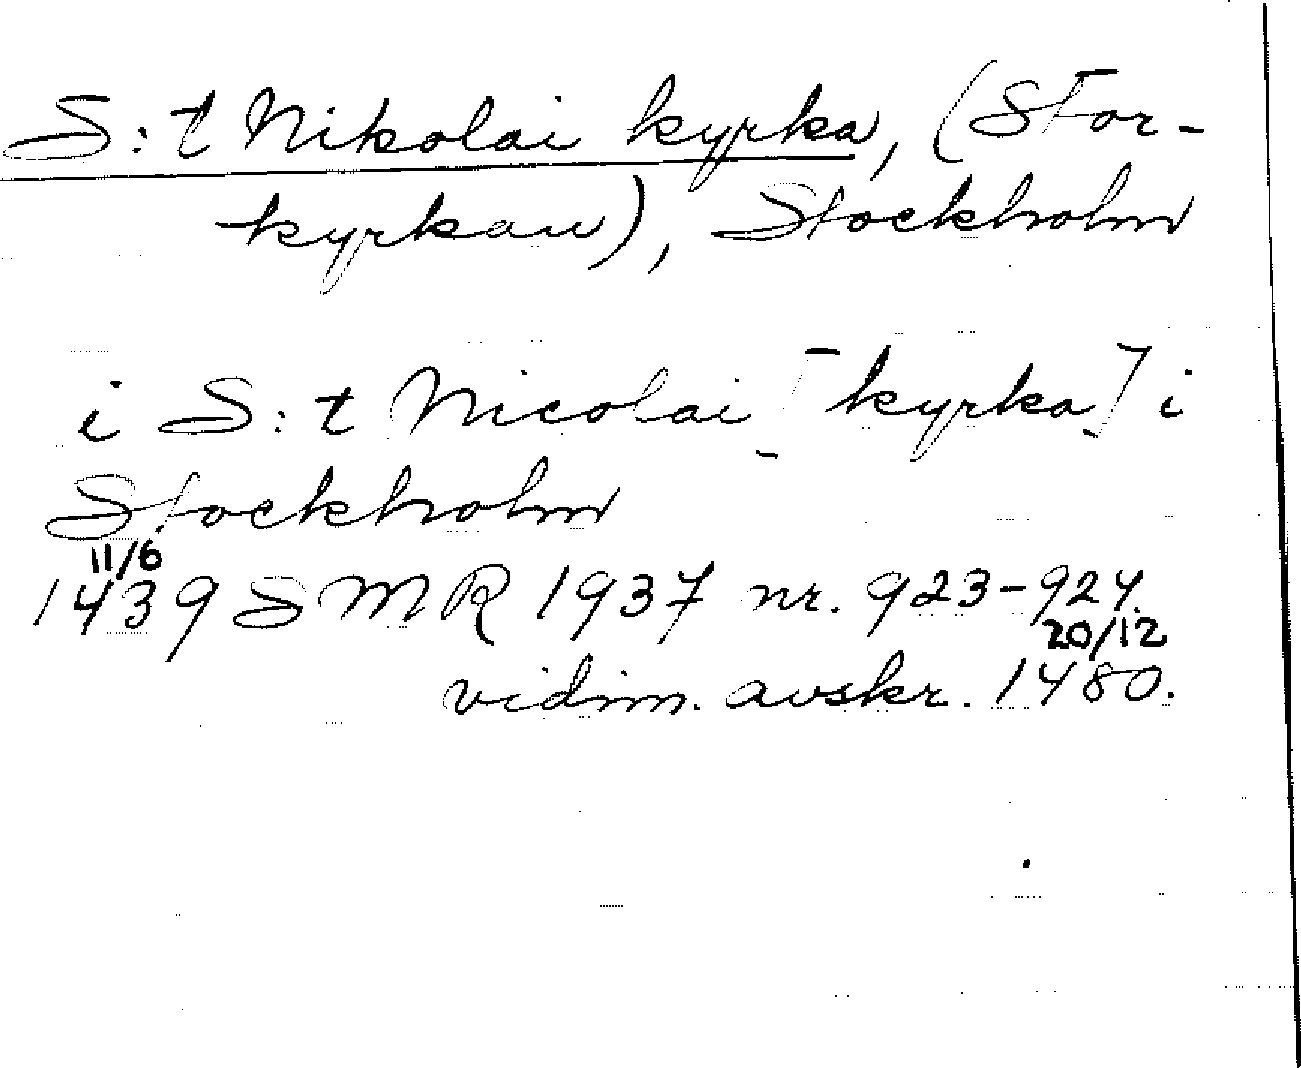 S:t Nikolai kyrka, (Stor-
kyrkan), Stockholm
i S:t Nicolai [kyrka] i
Stockholm
11/6
1439 SMR 1937 nr. 923-924.
20/12
vidim. avskr. 1480.